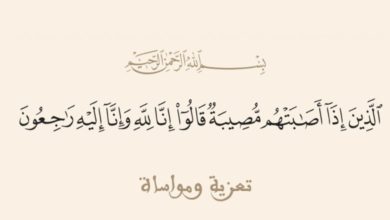 بِسْمِ اللَّهِ الرَّحْمَٰنِ الرَّحِيمِ
الَّذِينَ إِذَا أَصَابَتْهُم مُّصِيبَةٌ قَالُوا إِنَّا لِلَّهِ وَإِنَّا إِلَيْهِ رَاجِعُونَ
تعزية ومواساة